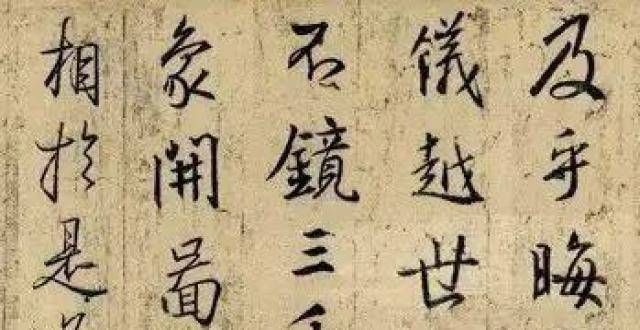 及乎晦
儀越世
不鏡三
象開啚
相於是